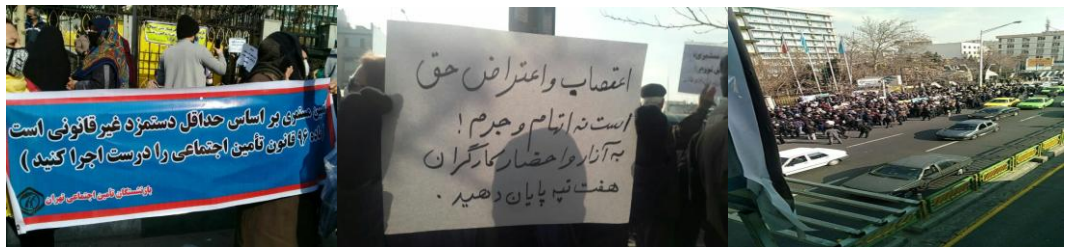 مستمری بر اساس حداقل دستمزد غیرقانونی است
ماده ۹۶ قانون تأمین اجتماعی را درست اجرا کنید )
بازنشستگان تأمین اجتماعی تهران
اعتصاب و اعتراض حق
است نه اتهام و جرم !
به آزار و احضار کارگران
هفت تپه پایان دهید .